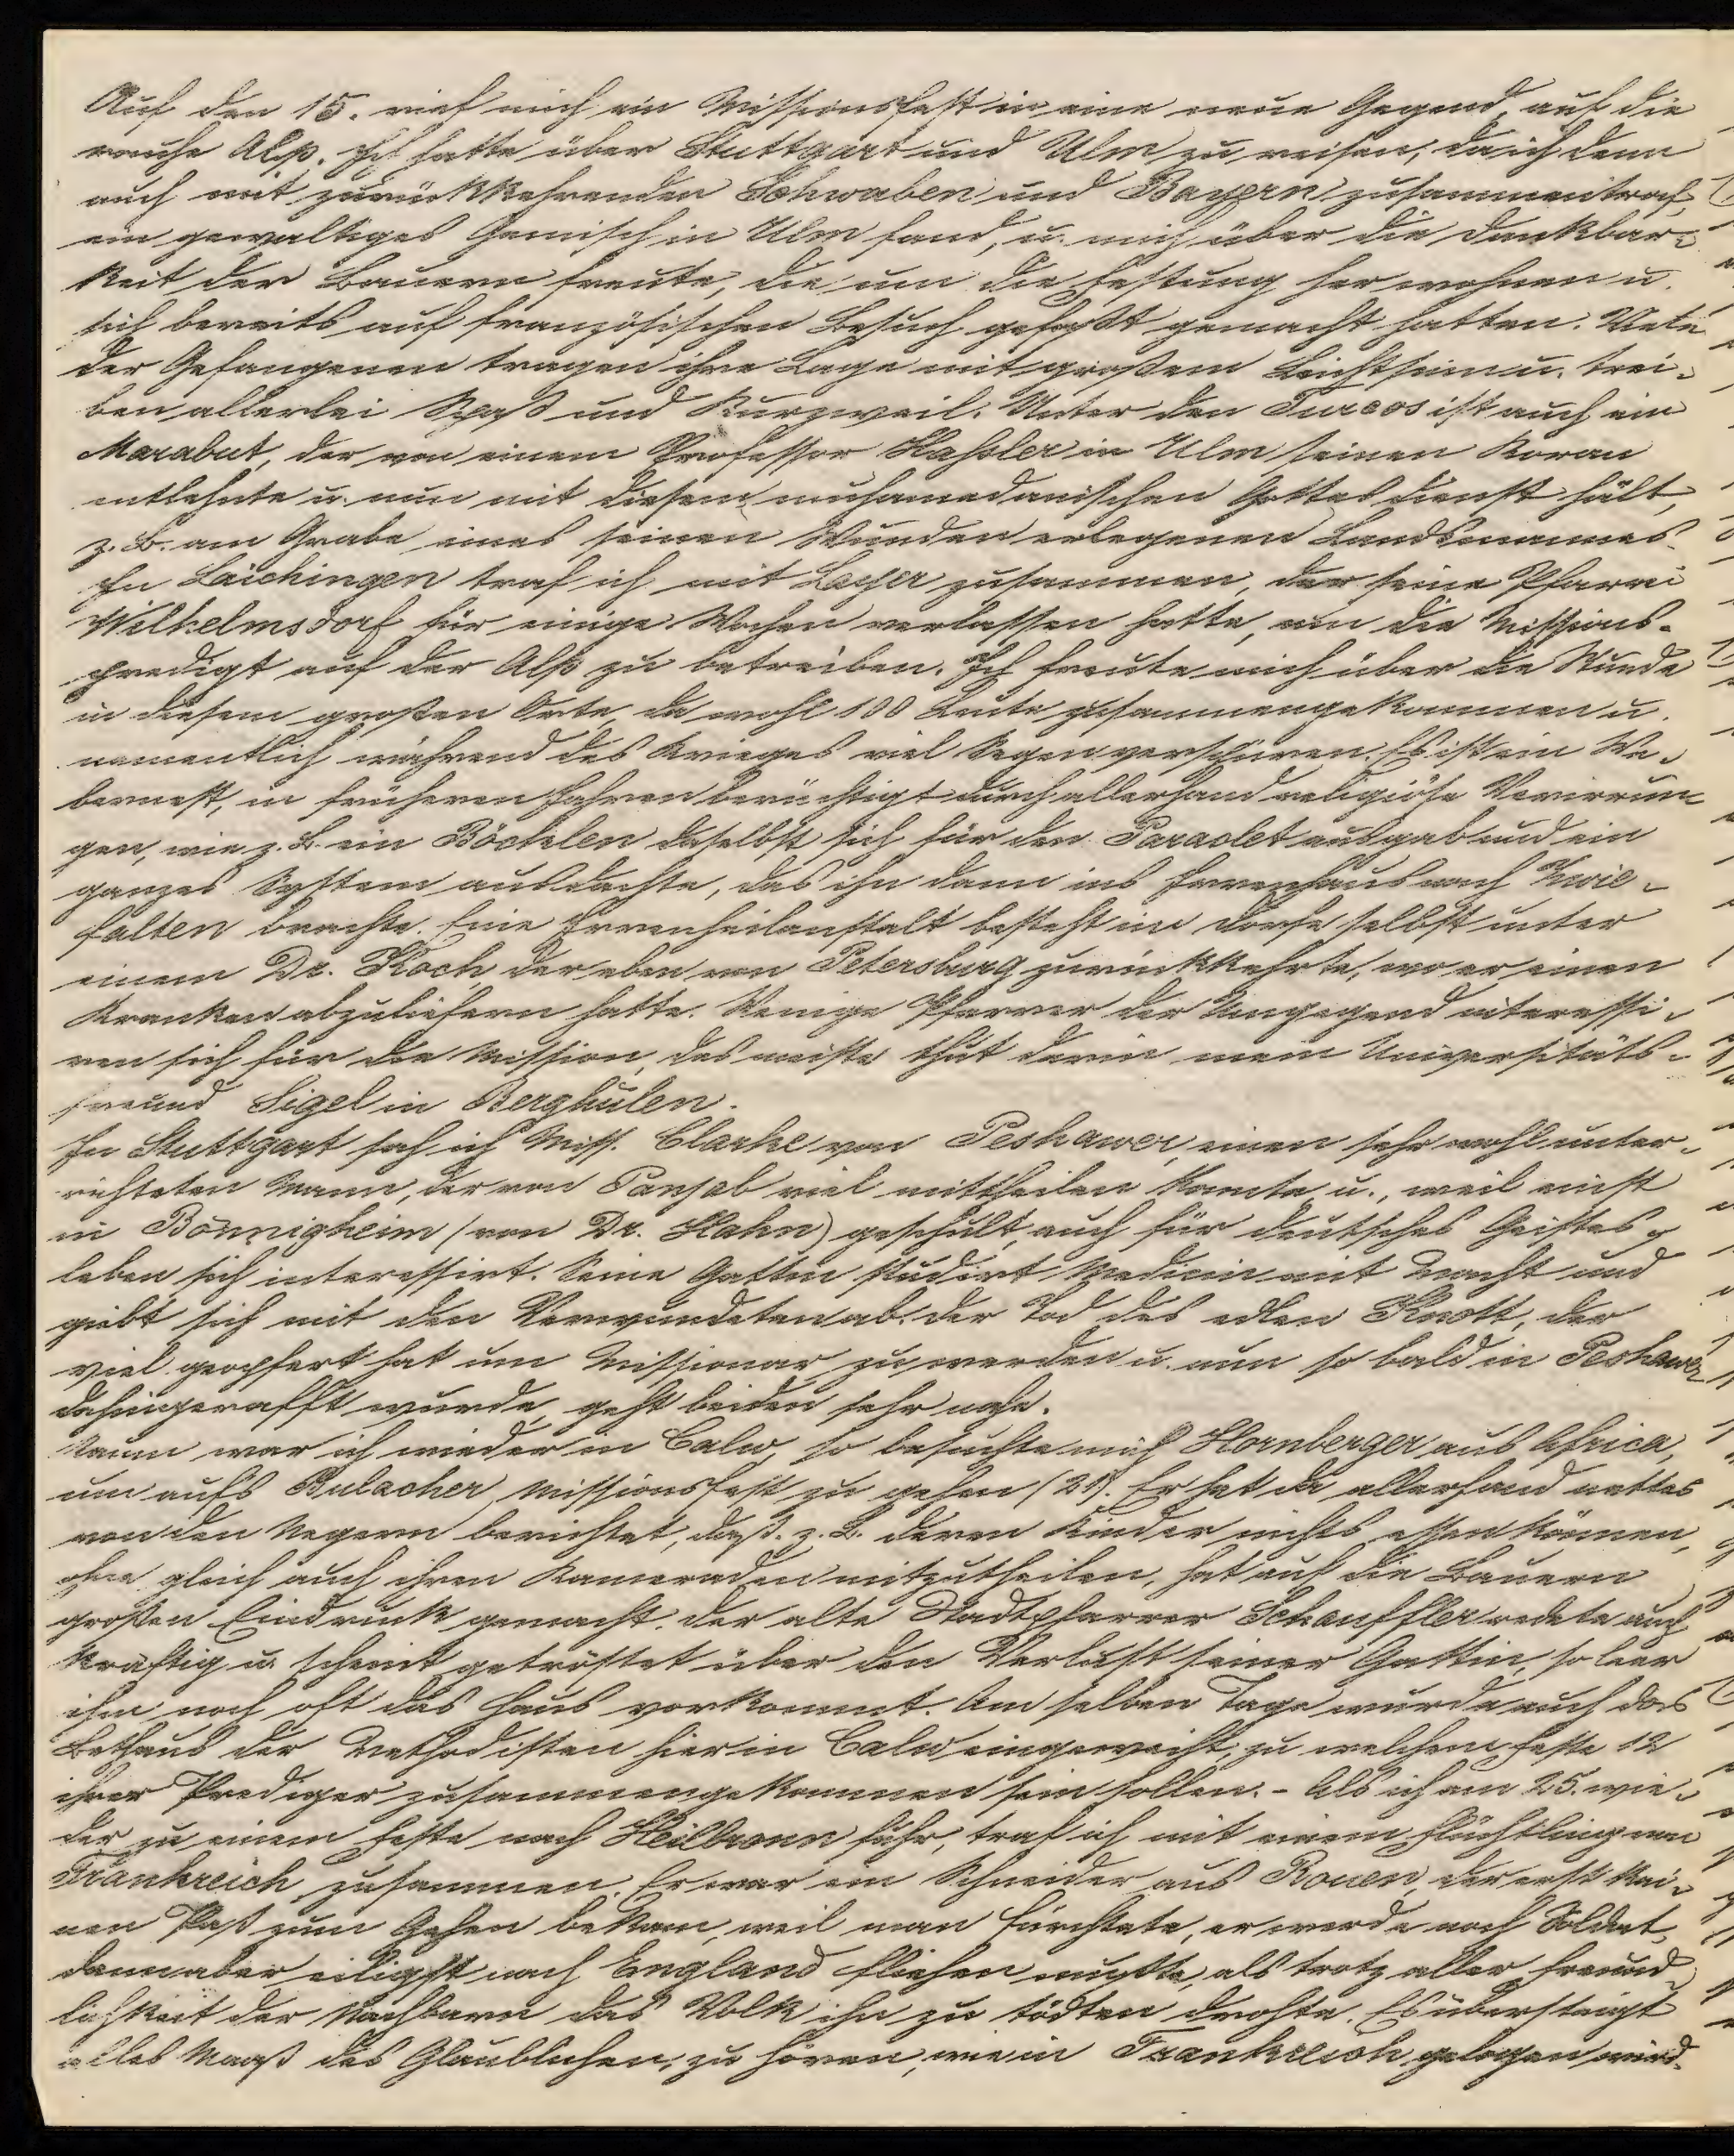 Auf den 15. rief mich ein Missionsfest in eine neue Gegend, auf die
rauhe Alp. Ich hatte über Stuttgart und Ulm zu reisen, da ich denn
auch mit zurückkehrenden Schwaben und Bayern zusammentraf,
ein gewaltiges Gemisch in Ulm fand, u. mich über die Dankbar-
keit der Bauern freute, die um die Festung her wohnen u.
sich bereits auf französischen Besuch gefaßt gemacht hatten. Viele
der Gefangenen tragen ihre Lage mit großem Leichtsinn u. trei-
ben allerlei Spaß und Kurzweil. Unter den Turcos ist auch ein
Marabut, der von einem Professor Haßler in Ulm seinen Koran
entlehnte u. nun mit diesem muhamedanischen Gottesdienst hält,
z. B. am Grabe eines seinen Wunden erlegenen Landsmannes.
In Laichingen traf ich mit Layer zusammen, der seine Pfarrei
Wilhelmsdorf für einige Wochen verlassen hatte, um die Missions-
predigt auf der Alp zu betreiben. Ich freute mich über die Stunde
in diesem großen Orte, da wohl 100 Leute zusammengekommen u.
namentlich während des Krieges viel Segen verspüren. Es ist ein We-
bernest, in früheren Jahren berüchtigt durch allerhand religiöse Verirrun-
gen, wie z. B. ein Böcklen daselbst sich für den Paraclet ausgab und ein
ganzes System ausdachte, das ihn dann ins Irrenhaus nach Zwie-
falten brachte. Eine Irrenheilanstalt besteht im Dorfe selbst unter
einem Dr. Koch, der eben von Petersburg zurückkehrte, wo er einen
Kranken abzuliefern hatte. Wenige Pfarrer der Umgegend interessi-
ren sich für die Mission, das meiste thut darin mein Universitäts-
freund Sigel in Berghülen.
In Stuttgart sah ich Miss. Clarke von Peshawer, einen sehr wohl unter-
richteten Mann, der von Panjab viel mittheilen konnte u., weil einst
in Bönnigheim (von Dr. Hahn) geschult, auch für deutsches Geistes-
leben sich interessirt. Seine Gattin studirt Medicin mit Macht und
giebt sich mit den Verwundeten ab. Der Tod des edlen Knott, der
viel geopfert hat um Missionar zu werden u. nun so bald in Peshawer
dahingerafft wurde, geht beiden sehr nahe.
Kaum war ich wieder in Calw, so besuchte mich Hornberger aus Africa,
um aufs Bulacher Missionsfest zu gehen (21). Er hat da allerhand nettes
von den Negern berichtet, daß z. B. deren Kinder nichts essen können,
ohne gleich auch ihren Kameraden mitzutheilen, hat auf die Bauern
großen Eindruck gemacht. Der alte Stadtpfarrer Schauffler redete auch
kräftig u. scheint getröstet über den Verlust seiner Gattin, so leer
ihm noch oft das Haus vorkommt. Am selben Tage wurde auch das
Bethaus der Methodisten hier in Calw eingeweiht, zu welchem Feste 12
ihrer Prediger zusammengekommen sein sollen. - Als ich am 25. wie-
der zu einem Feste nach Heilbronn fuhr, traf ich mit einem Flüchtling von
Frankreich zusammen. Er war ein Schneider aus Rouen, der erst kei-
nen Paß zum Gehen bekam, weil man fürchtete, er werde noch Soldat,
dann aber eiligst nach England fliehen mußte, als trotz aller Freund-
lichkeit der Nachbarn das Volk ihn zu tödten drohte. Es übersteigt
alles Maaß des Glaublichen, zu hören, wie in Frankreich gelogen wird.